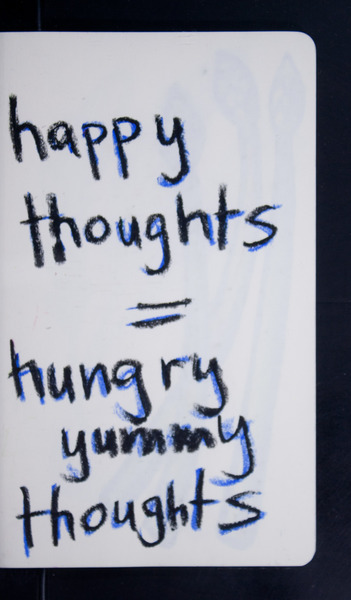 happy
thoughts
=
hungry
yummy
thoughts